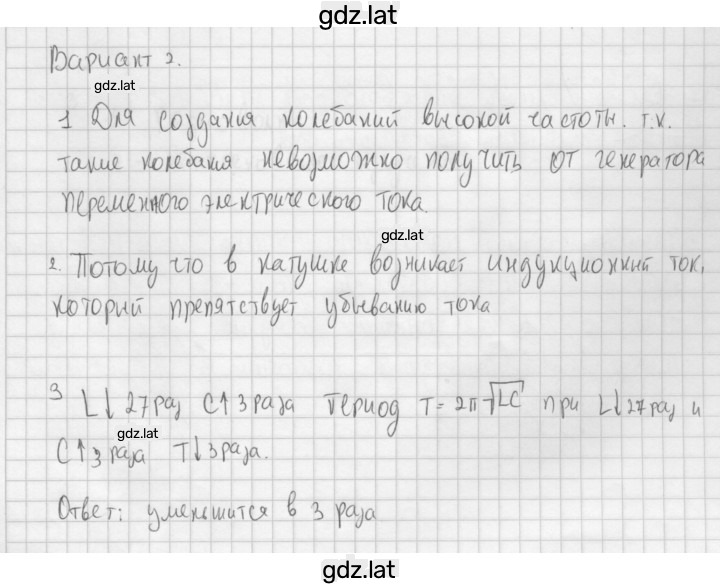 gdz.lat
Вариант 2.
gdz.lat
1 Для создания колебаний высокой частоты. т.к.
такие колебания невозможно получить от генератора
переменного электрического тока.
gdz.lat
2. Потому что в катушке возникает индукционный ток,
который препятствует убыванию тока
3 L↓ 27 раз C↑ 3 раза период T = 2π√LC при L↓ 27 раз и
gdz.lat
C↑ 3 раза T↓ 3 раза.
Ответ: уменьшится в 3 раза
gdz.lat